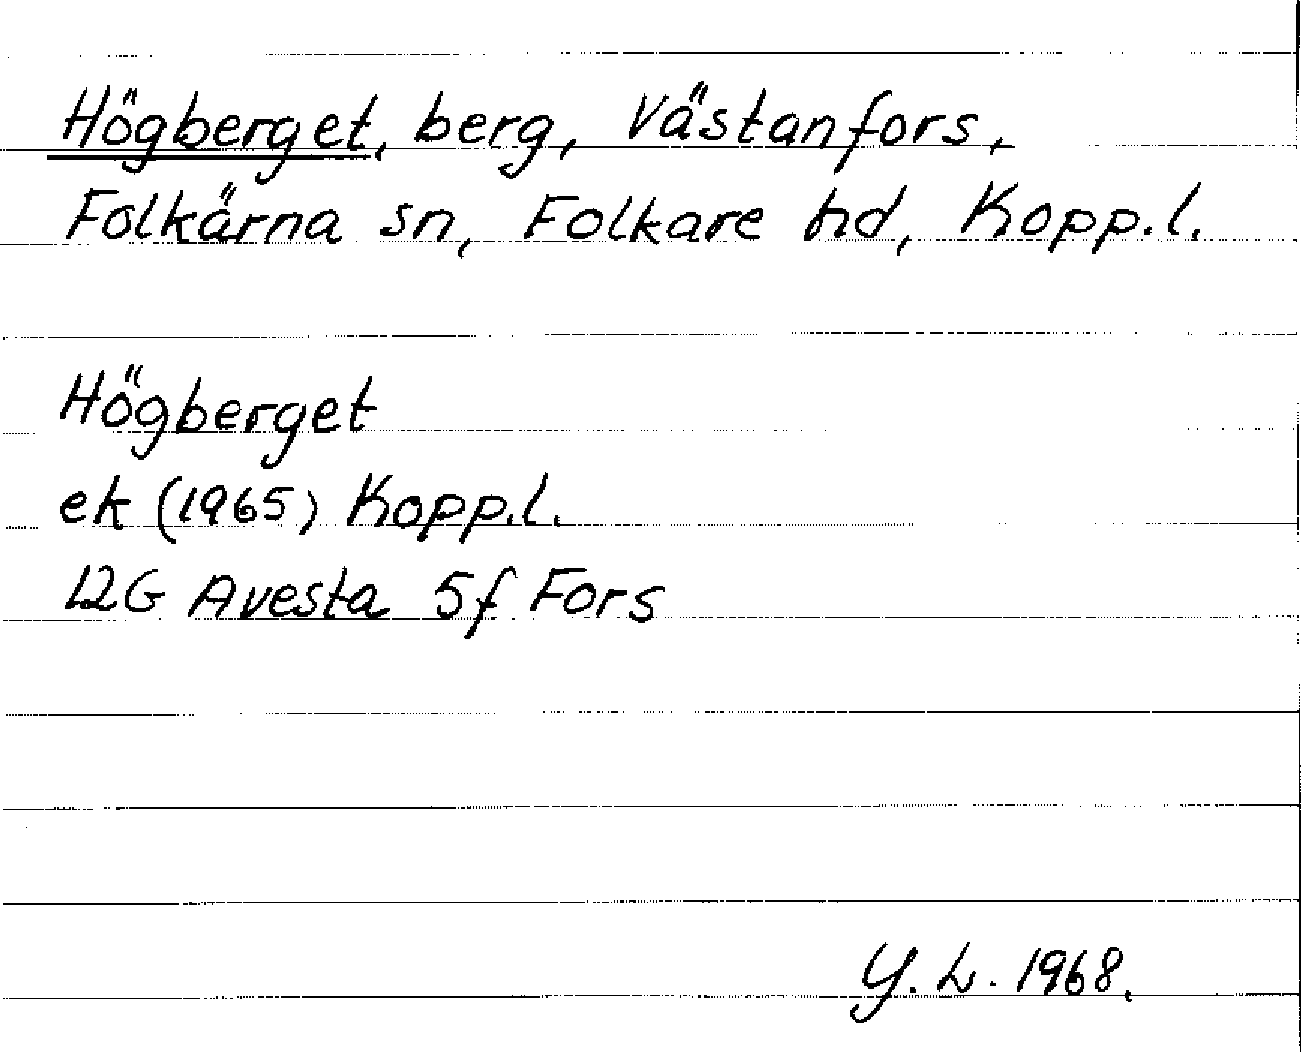 Högberget, berg, Västanfors,
Folkärna sn, Folkare hd, Kopp.l.
Högberget
ek (1965) Kopp.l.
12G Avesta 5f Fors
Y. L. 1968.